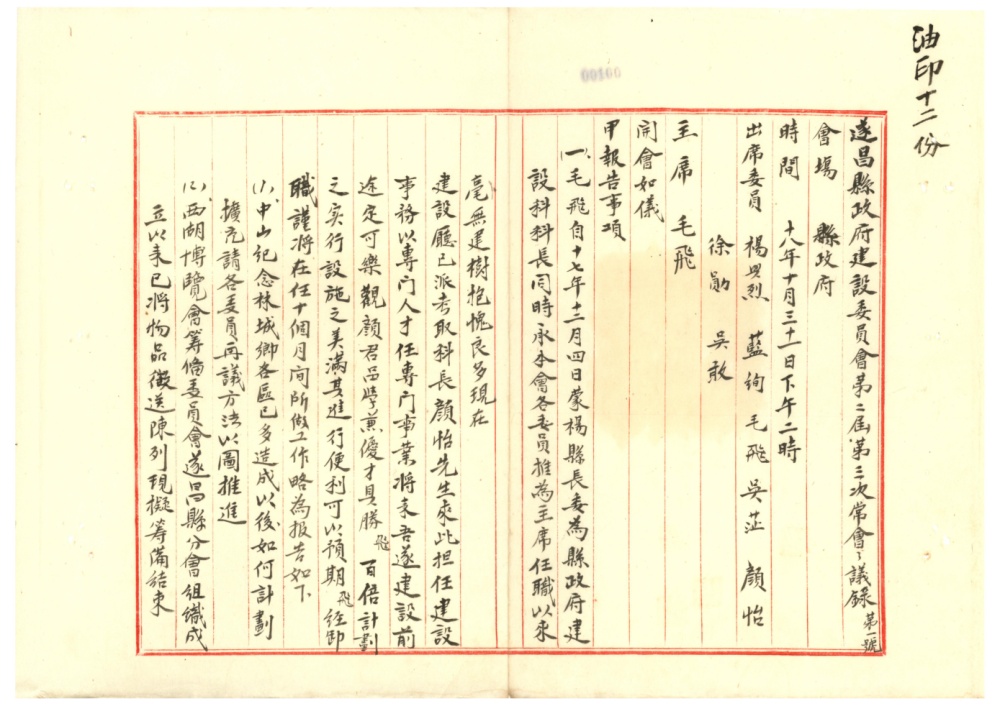 油印十二份
00100
遂昌縣政府建設委員會第二屆第三次常會議錄 第一號
會場 縣政府
時間 十八年十月三十一日下午二時
出席委員 楊興烈 藍絢 毛飛 吳茳 顏怡
徐勛 吳敢
主席 毛飛
開會如儀
甲報告事項
(一)毛飛自十七年十二月四日蒙楊縣長委為縣政府建
設科科長同時承本會各委員推為主席任職以來
毫無建樹抱愧良多現在
建設廳已派考取科長顏怡先生來此担任建設
事務以專門人才任專門事業將來吾遂建設前
途定可樂觀顏君品學兼優才具勝飛百倍計劃
之实行設施之美滿其進行便利可以預期飛經卸
職謹將在任十個月间所做工作略為报告如下
(1)中山紀念林城鄉各區已多造成以後如何計劃
擴充請各委員再議方法以圖推進
(2)西湖博覽會籌俻委員會遂昌縣分會組織成
立以来已將物品徵送陳列現擬籌備結束